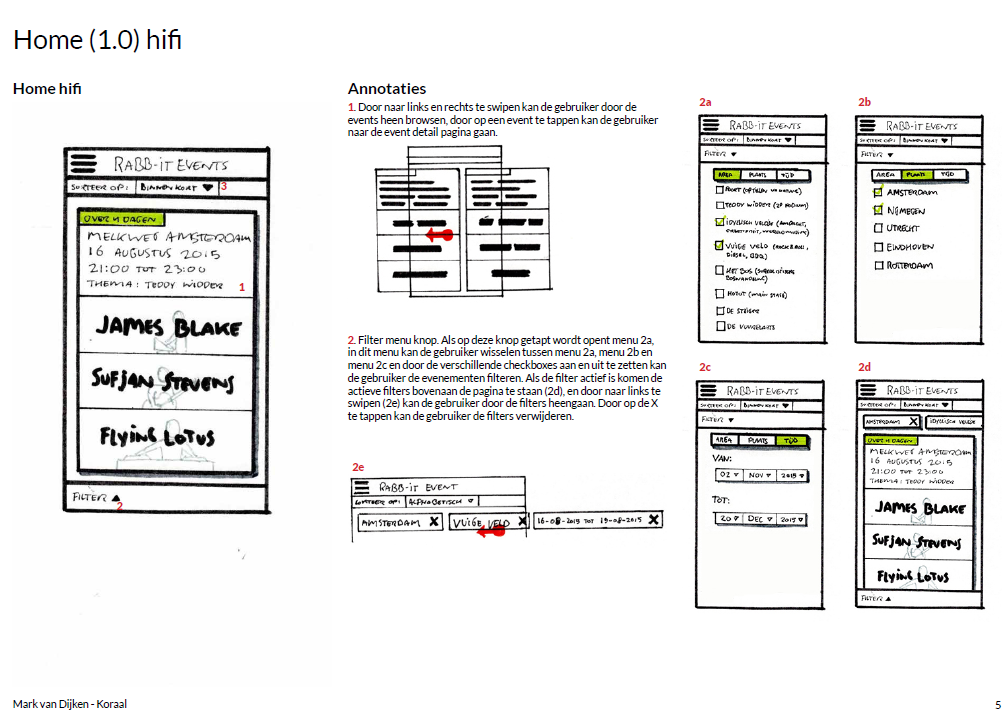 Home (1.0) hifi
Home hifi
RABB-IT EVENTS
SORTEER OP: BINNEN KORT
3
OVER 4 DAGEN
MELKWEG AMSTERDAM
16 AUGUSTUS 2015
21:00 TOT 23:00
THEMA: TEDDY WIDDER
1
JAMES BLAKE
SUFJAN STEVENS
FLYING LOTUS
FILTER
2
Annotaties
1. Door naar links en rechts te swipen kan de gebruiker door de
events heen browsen, door op een event te tappen kan de gebruiker
naar de event detail pagina gaan.
2. Filter menu knop. Als op deze knop getapt wordt opent menu 2a,
in dit menu kan de gebruiker wisselen tussen menu 2a, menu 2b en
menu 2c en door de verschillende checkboxes aan en uit te zetten kan
de gebruiker de evenementen filteren. Als de filter actief is komen de
actieve filters bovenaan de pagina te staan (2d), en door naar links te
swipen (2e) kan de gebruiker door de filters heengaan. Door op de X
te tappen kan de gebruiker de filters verwijderen.
2e
RABB-IT EVENT
SORTEER OP: ALPHABETISCH
AMSTERDAM X
VUIGE VELD X
16-08-2015 TOT 19-08-2015 X
2a
RABB-IT EVENTS
SORTEER OP: BINNEN KORT
FILTER
AREA PLAATS TIJD
TEDDY WIDDER (2e PODIUM)
IDYLLISCH VELDJE
VUIGE VELD
HET BOS
HOOFD (MAIN STAGE)
DE STEIGER
2b
RABB-IT EVENTS
SORTEER OP: BINNEN KORT
FILTER
AREA PLAATS TIJD
AMSTERDAM
NIJMEGEN
UTRECHT
EINDHOVEN
ROTTERDAM
2c
RABB-IT EVENTS
SORTEER OP: BINNEN KORT
FILTER
AREA PLAATS TIJD
VAN:
02 NOV 2015
TOT:
20 DEC 2015
2d
RABB-IT EVENTS
SORTEER OP: BINNEN KORT
AMSTERDAM X
IDYLLISCH VELDJE
OVER 4 DAGEN
MELKWEG AMSTERDAM
16 AUGUSTUS 2015
21:00 TOT 23:00
THEMA: TEDDY WIDDER
JAMES BLAKE
SUFJAN STEVENS
FLYING LOTUS
FILTER
Mark van Dijken - Koraal
5